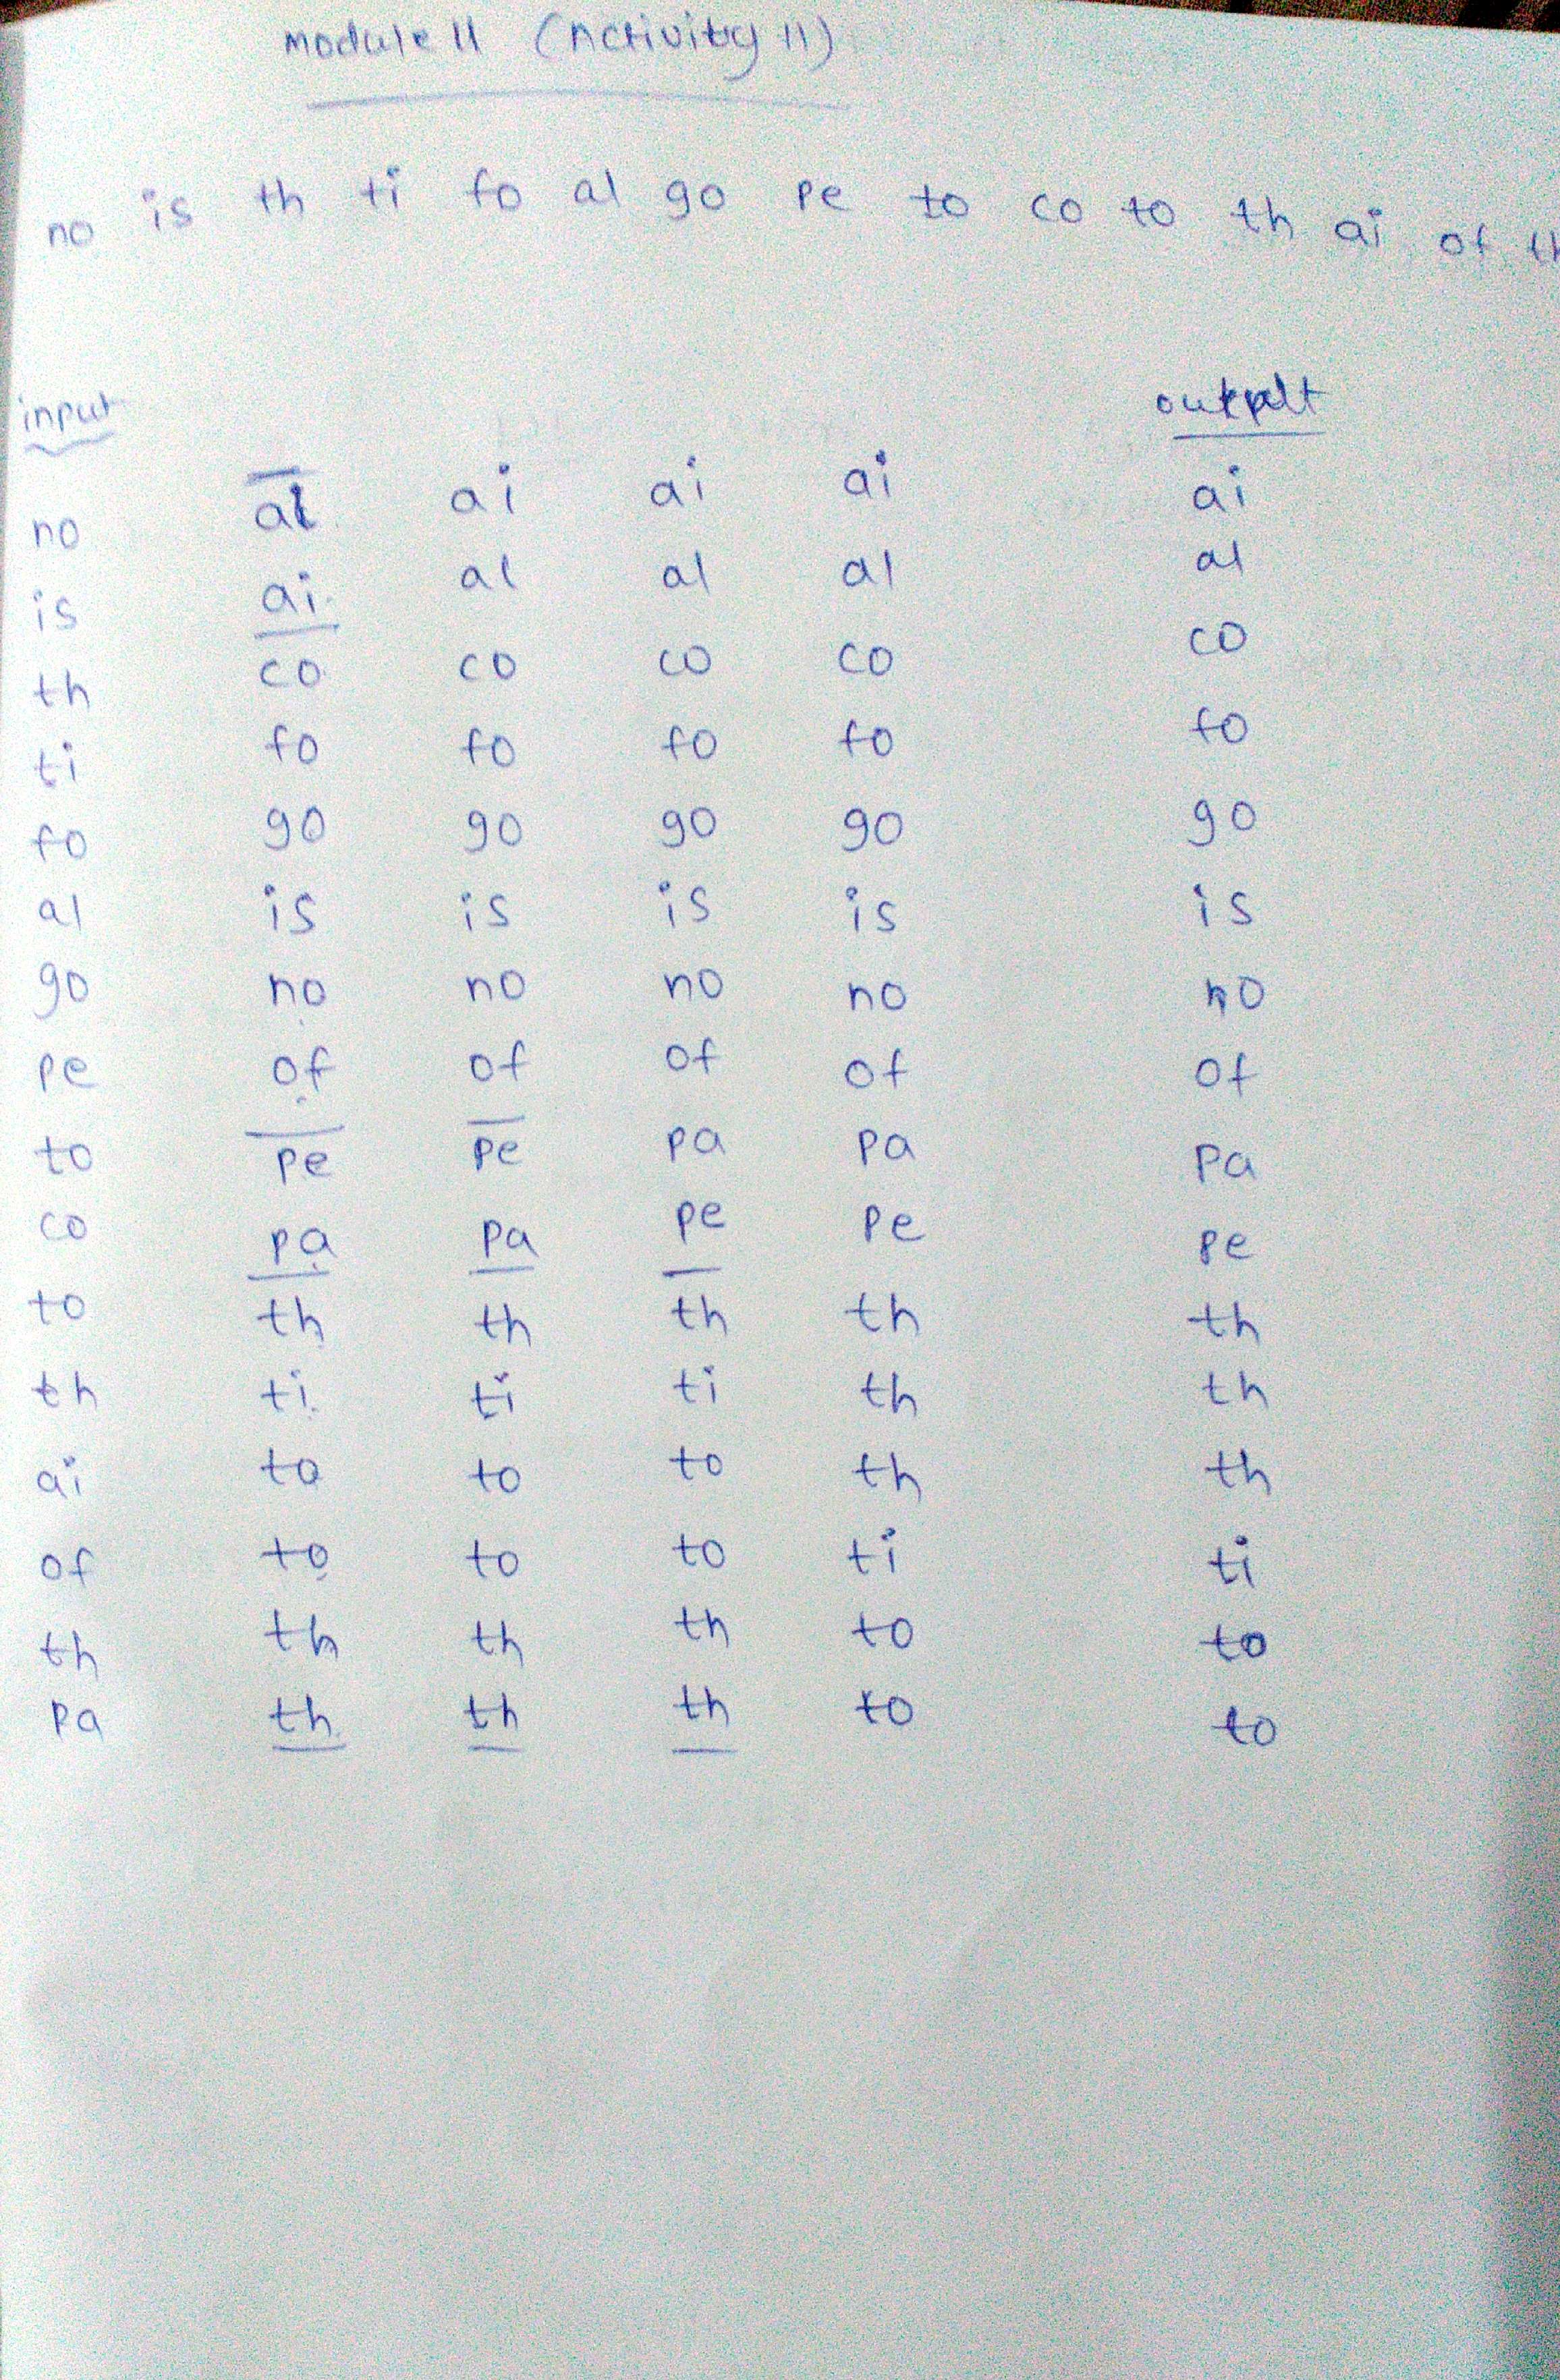 Module 11 (Activity 11)
no is th ti fo al go pe to co to th ai of th
input output
no al ai ai ai ai
is ai al al al al
th co co co co co
ti fo fo fo fo fo
fo go go go go go
al is is is is is
go no no no no no
pe of of of of of
to pe pe pa pa pa
co pa pa pe pe pe
to th th th th th
th ti ti ti th th
ai to to to th th
of to to to ti ti
th th th th to to
pa th th th to to